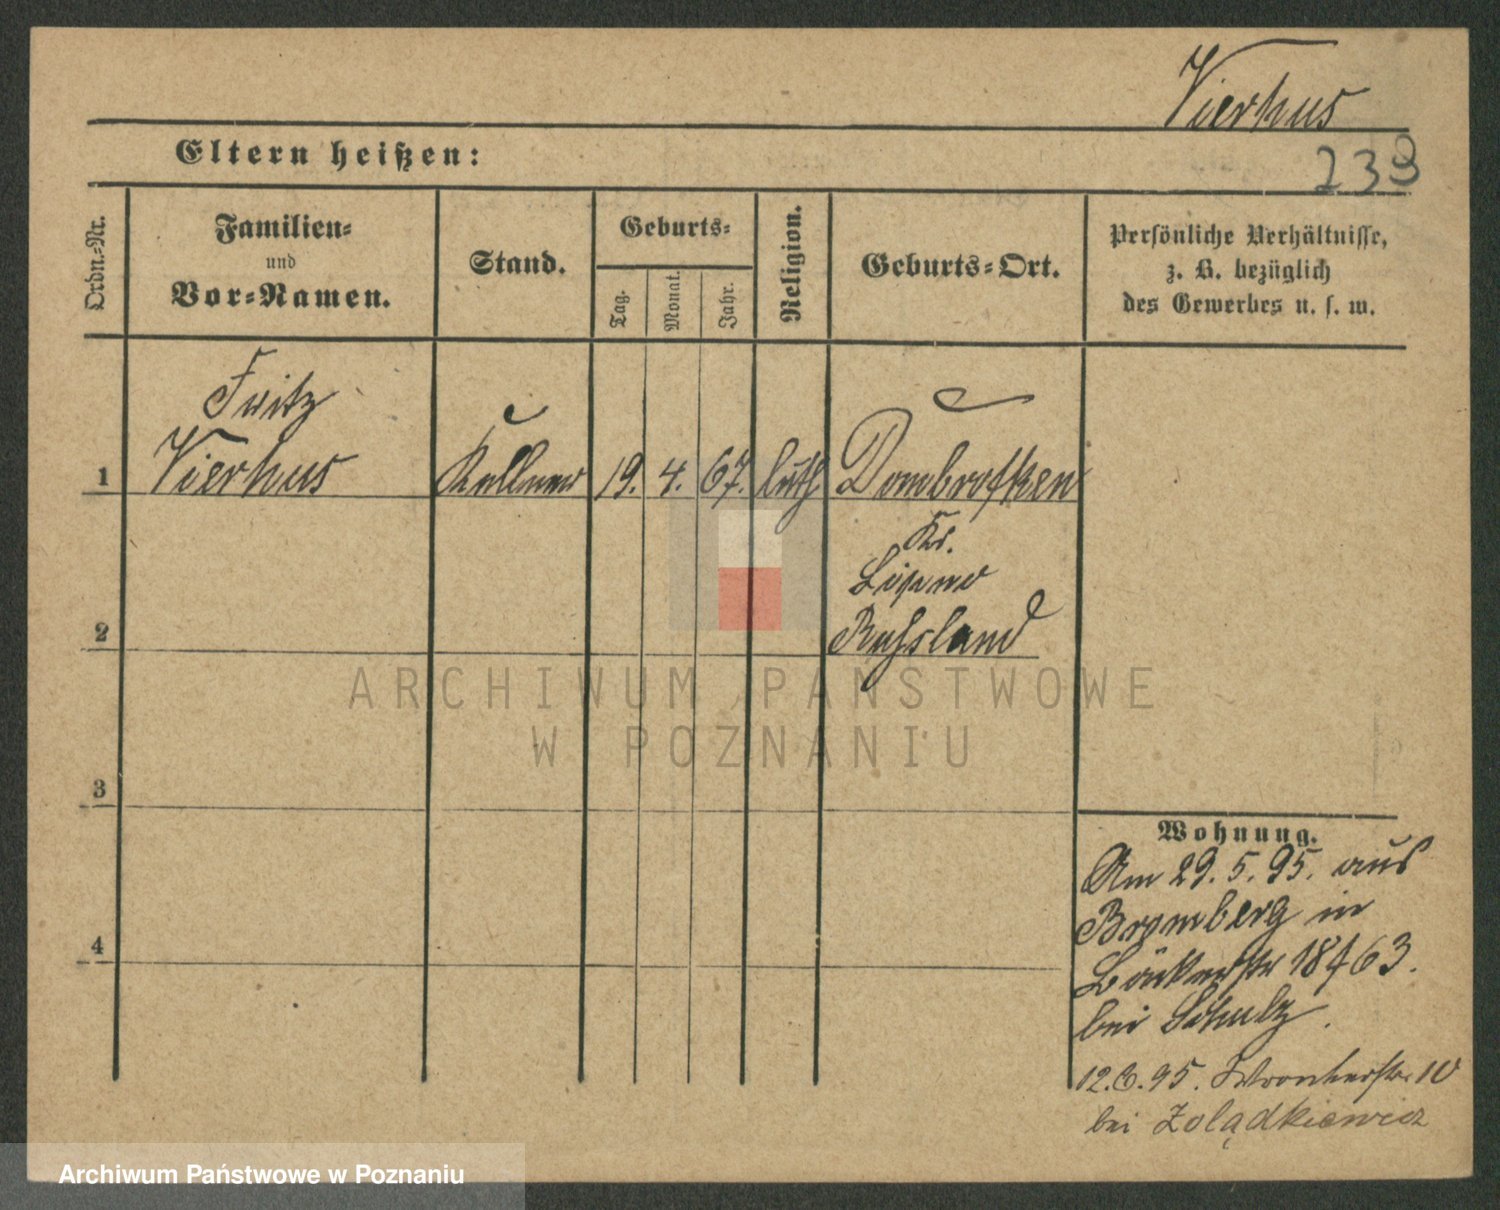 Vierhus
Eltern heißen:
239
Ordn.-Nr.
Familien-
und
Vor-Namen.
Stand.
Geburts-
Tag.
Monat.
Jahr.
Religion.
Geburts-Ort.
Persönliche Verhältnisse,
z. B. bezüglich
des Gewerbes u. s. w.
Fritz
1 Vierhus Kellner 19. 4. 67. luth Dombrofken
Kr.
Lipno
2 Russland
ARCHIWUM PAŃSTWOWE
W POZNANIU
3
Wohnung.
Am 29. 5. 95. aus
Bromberg in
Bäckerstr
bei Schulz.
4
12.6.95. Wronkerstr. 10
bei Żolądkiewicz
Archiwum Państwowe w Poznaniu